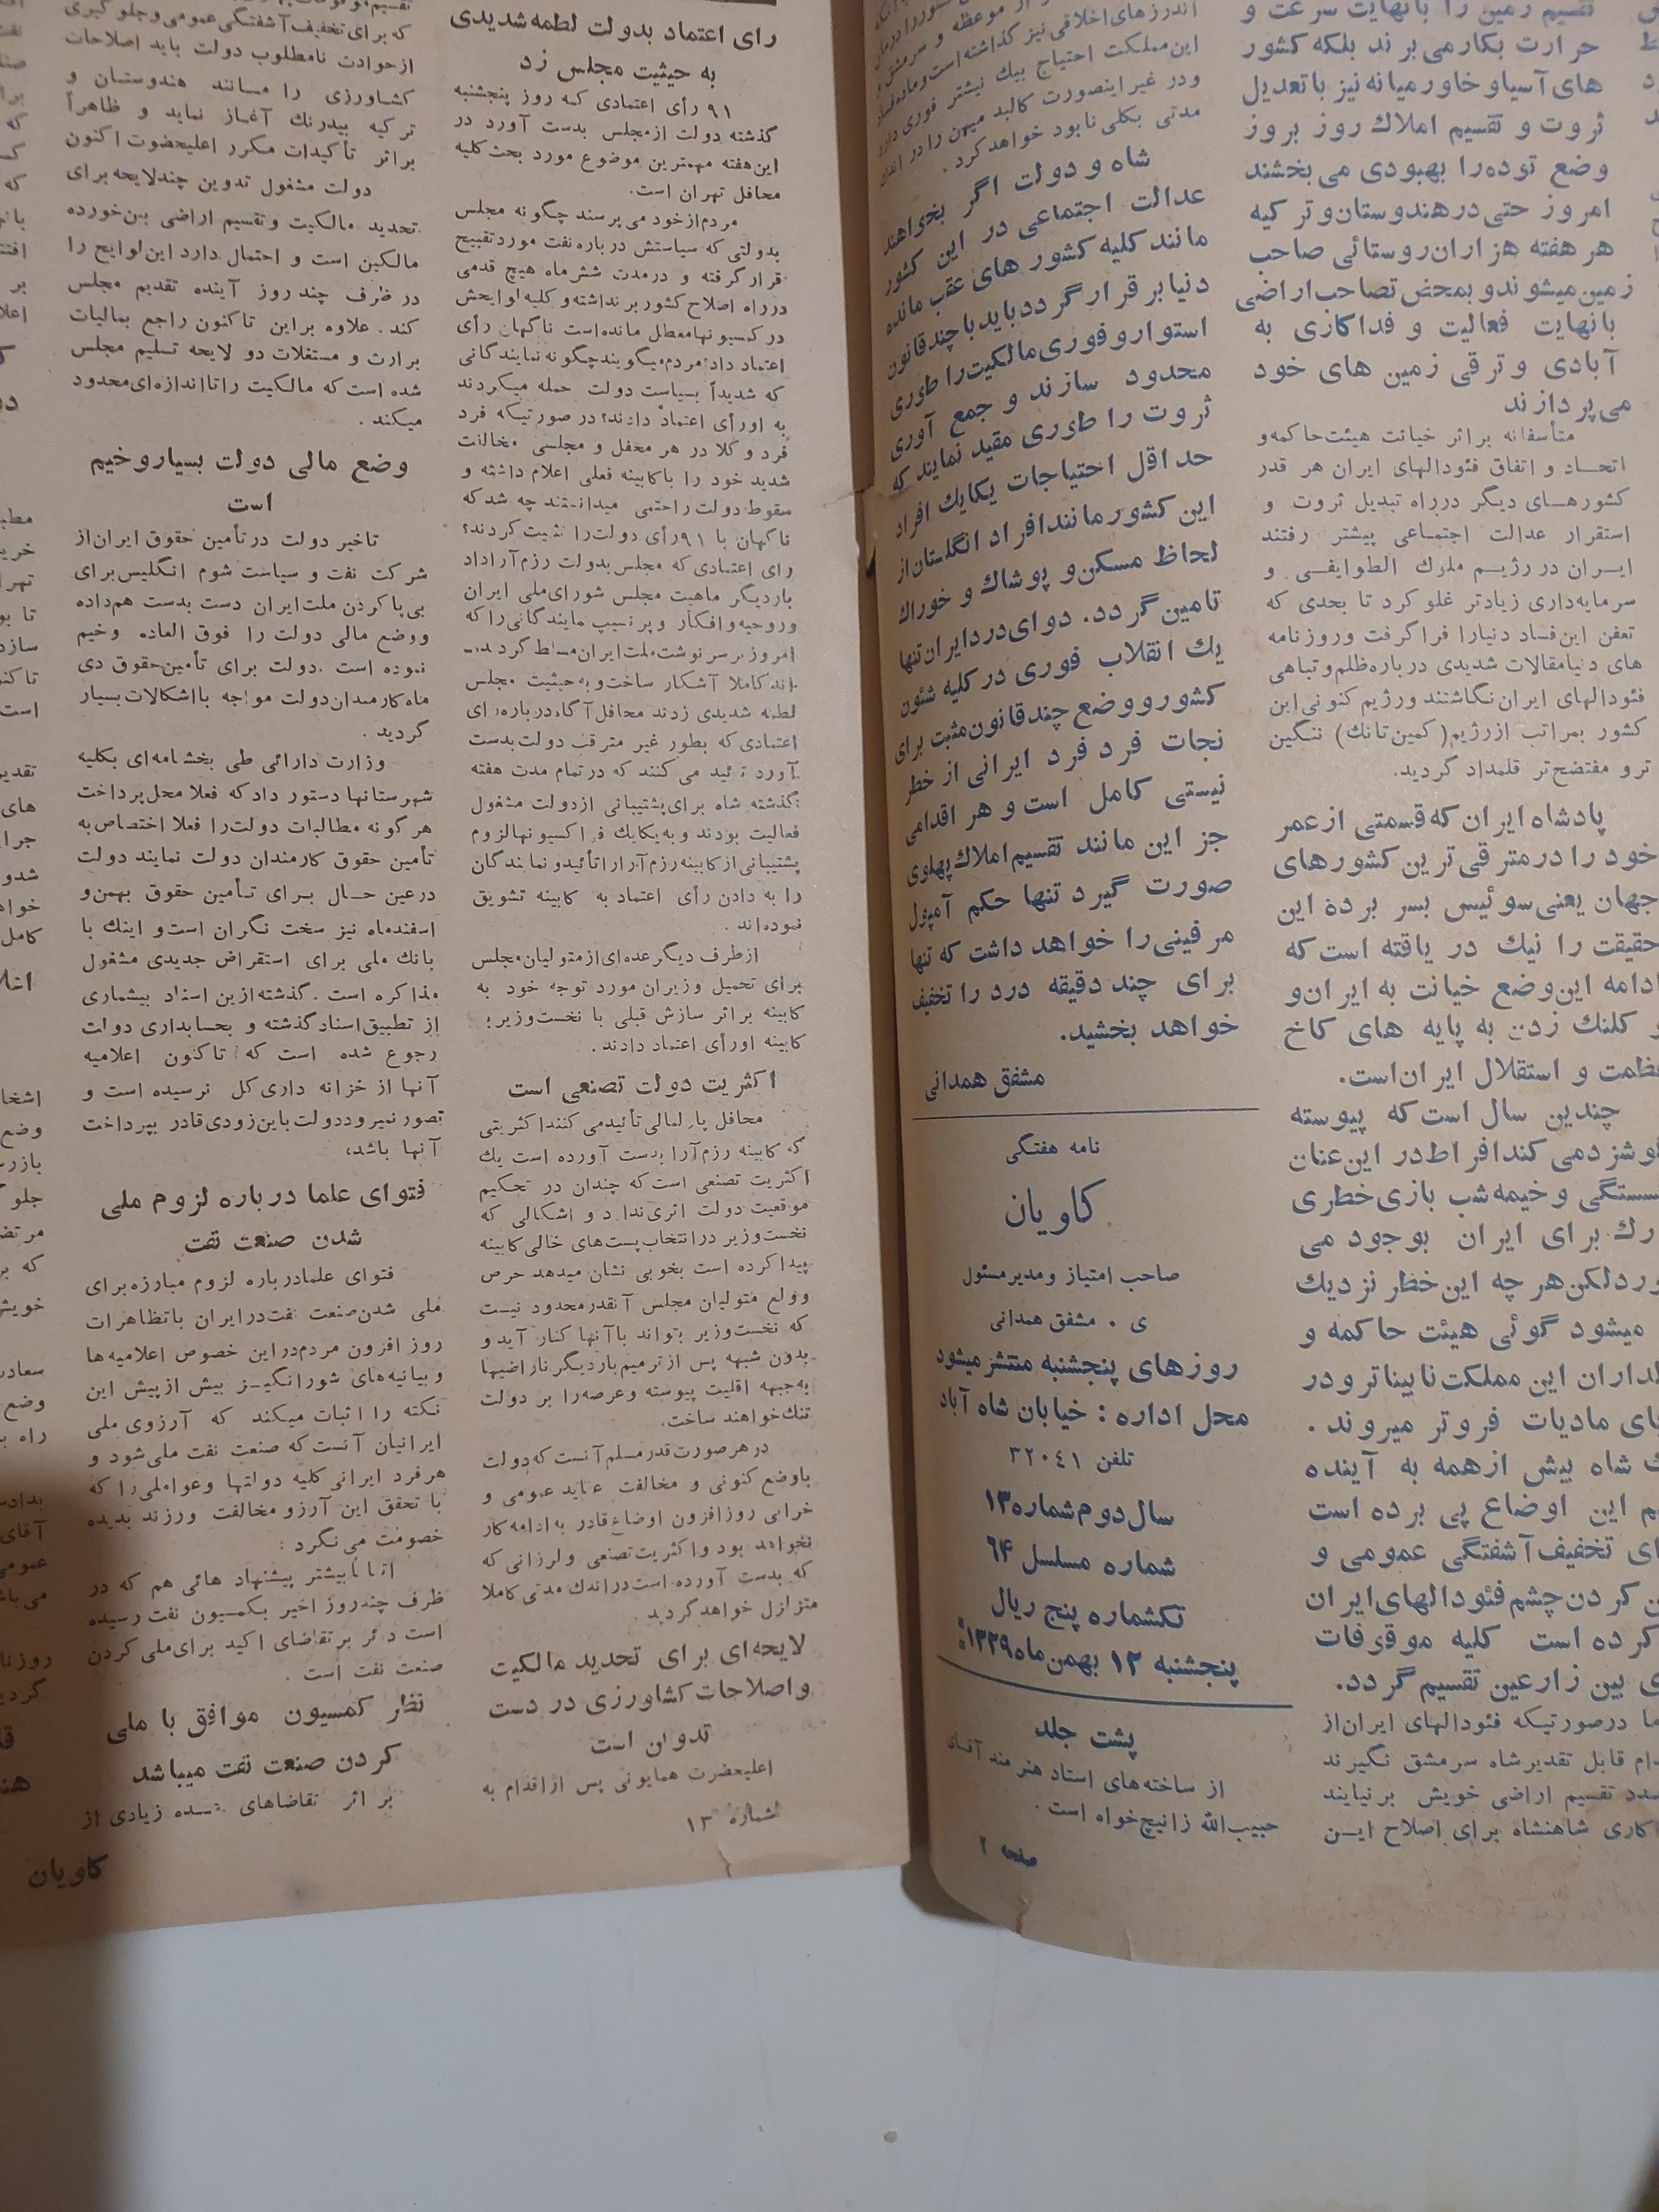 تقسیم زمین را بانهایت سرعت و
حرارت بکارمی‌برند بلکه کشور
های آسیاو خاورمیانه نیز باتعدیل
ثروت و تقسیم املاك روز بروز
وضع توده‌را بهبودی می‌بخشند
امروز حتی درهندوستان‌وترکیه
هر هفته هزاران‌روستائی صاحب
زمین‌میشوندو بمحض تصاحب‌اراضی
بانهایت فعالیت و فداکاری به
آبادی وترقی زمین های خود
می‌پردازند
متأسفانه براثر خیانت هیئت‌حاکمه‌و
اتحاد و اتفاق فئودالهای ایران هر قدر
کشورهای دیگر درراه تبدیل ثروت و
استقرار عدالت اجتماعی پیشتر رفتند
ایران در رژیم ملوك الطوایفی و
سرمایه‌داری زیادتر غلو کرد تا بحدی که
تعفن این‌فساد دنیارا فراگرفت وروزنامه
های دنیامقالات شدیدی درباره‌ظلم‌وتباهی
فئودالهای ایران‌نگاشتند ورژیم کنونی‌این
کشور بمراتب ازرژیم(کمین‌تانك) ننگین
ترو مفتضح‌تر قلمداد گردید.
پادشاه ایران که‌قسمتی ازعمر
خود را درمترقی‌ترین کشورهای
جهان یعنی‌سوئیس بسر برده این
حقیقت را نیك در یافته است‌که
ادامه این‌وضع خیانت به ایران‌و
کلنك زدن به پایه های کاخ
عظمت و استقلال ایران‌است.
چندین سال است‌که پیوسته
گوشزدمی‌کندافراط‌در این‌عنان
گسستگی و خیمه‌شب بازی‌خطری
برای ایران بوجود می
لکن‌هر چه این‌خطر نزدیك
میشود گوئی هیئت حاکمه و
این مملکت‌نابیناترودر
مادیات فروتر میروند.
شاه بیش ازهمه به آینده
این اوضاع پی برده است
تخفیف‌آشفتگی عمومی و
کردن‌چشم‌فئودالهای‌ایران
کرده است کلیه موقوفات
بین زارعین تقسیم گردد.
درصورتیکه فئودالهای ایران‌از
قابل تقدیرشاه سرمشق نگیرند
تقسیم اراضی خویش برنیایند
شاهنشاه برای اصلاح این
اندرزهای‌اخلاقی‌نیز گذاشته‌است
این‌مملکت احتیاج بیك نیشتر فوری دارد
ودر غیراینصورت کالبد میهن را در اندك
مدتی بکلی‌نابود خواهدکرد.
شاه و دولت اگر بخواهند
عدالت اجتماعی در این کشور
مانند کلیه کشور های عقب مانده
دنیابر قرارگرددبایدباچندقانون
استواروفوری‌مالکیت‌را طوری
محدود سازند و جمع آوری
ثروت را طوری مقید نمایندکه
حداقل احتیاجات یکایك افراد
این کشورمانندافراد انگلستان‌از
لحاظ مسکن‌و پوشاك و خوراك
تامین‌گردد. دوای‌دردایران‌تنها
یك انقلاب فوری درکلیه شئون
کشورووضع چندقانون‌مثبت برای
نجات فرد فرد ایرانی از خطر
نیستی کامل است و هر اقدامی
جز این مانند تقسیم‌املاك‌پهلوی
صورت گیرد تنها حکم آمپول
مرفینی‌را خواهد داشت که تنها
برای چند دقیقه درد را تخفیف
خواهد بخشید.
مشفق همدانی
نامه هفتگی
کاویان
صاحب امتیاز ومدیرمسئول
ی . مشفق همدانی
روزهای پنجشنبه منتشرمیشود
محل اداره : خیابان شاه آباد
تلفن ۳۲۰۴۱
سال‌دوم‌شماره۱۳
شماره مسلسل ۶۴
تکشماره پنج ریال
پنجشنبه ۱۲ بهمن‌ماه۱۳۲۹
پشت جلد
از ساخته‌های استاد هنرمند آقای
حبیب‌الله زانیچ‌خواه است.
صفحه ۲
رای اعتماد بدولت لطمه‌شدیدی
به حیثیت مجلس زد
۹۱ رأی اعتمادی که روز پنجشنبه
گذشته دولت ازمجلس بدست آورد در
این‌هفته مهمترین موضوع مورد بحث‌کلیه
محافل تهران است.
مردم‌ازخود می‌پرسند چگونه مجلس
بدولتی‌که سیاستش درباره‌نفت موردتقبیح
قرارگرفته و درمدت شش‌ماه هیچ قدمی
درراه اصلاح‌کشوربرنداشته‌وکلیه‌لوایحش
درکمسیونهامعطل مانده‌است ناگهان رأی
اعتماد داد؛مردم‌میگویندچگونه‌نمایندگانی
که شدیداً بسیاست دولت حمله میکردند
به اورأی اعتماد دادند؟در صورتیکه فرد
فرد وکلا در هر محفل و مجلسی مخالفت
شدید خود را باکابینه فعلی اعلام داشته و
سقوط‌دولت راحتمی میدانستند چه شدکه
ناگهان با ۹۱رأی دولت‌را تثبیت‌کردند؟
رای اعتمادی که مجلس‌بدولت رزم‌آراداد
باردیگر ماهیت مجلس شورای‌ملی ایران
وروحیه‌وافکار وپرنسیپ نمایندگانی‌راکه
امروزبرسرنوشت‌ملت‌ایران‌مسلط‌گردیده‌
اندکاملا آشکار ساخت‌وبه‌حیثیت مجلس
لطمه شدیدی زدند محافل‌آگاه‌درباره‌رای
اعتمادی‌که بطور غیر مترقب دولت‌بدست
آورد تائید می‌کنند که درتمام مدت هفته
گذشته شاه برای‌پشتیبانی ازدولت مشغول
فعالیت بودند و به‌یکایك فراکسیونهالزوم
پشتیبانی‌ازکابینه‌رزم‌آراراتأئیدونمایندگان
را به دادن رأی اعتماد به کابینه تشویق
نموده‌اند.
ازطرف دیگرعده‌ای‌ازمتولیان‌مجلس
برای تحمیل وزیران مورد توجه خود به
کابینه براثر سازش قبلی با نخست‌وزیر؛
کابینه اورأی اعتماد دادند.
اکثریت دولت تصنعی است
محافل پارلمانی‌تأئیدمی‌کننداکثریتی
که کابینه رزم‌آرا بدست آورده است یك
اکثریت تصنعی است‌که چندان در تحکیم
موقعیت دولت اثری‌ندارد و اشکالی که
نخست‌وزیر درانتخاب‌پست‌های خالی‌کابینه
پیداکرده است بخوبی نشان میدهد حرص
وولع متولیان مجلس آنقدرمحدود نیست
که نخست‌وزیر بتواند باآنها کنار آید و
بدون شبهه پس ازترمیم‌باردیگرناراضیها
به‌جبهه اقلیت پیوسته وعرصه‌را بر دولت
تنك‌خواهند ساخت.
درهرصورت‌قدرمسلم‌آنست‌که‌دولت
باوضع کنونی و مخالفت عقاید عمومی و
خرابی روزافزون اوضاع‌قادر به‌ادامه‌کار
نخواهد بود واکثریت‌تصنعی ولرزانی که
که بدست آورده‌است‌دراندك مدتی‌کاملا
متزلزل خواهدگردید.
لایحه‌ای برای تحدید مالکیت
واصلاحات‌کشاورزی در دست
تدوین است
اعلیحضرت همایونی پس ازاقدام به
شماره ۱۳
که برای‌تخفیف‌آشفتگی‌عمومی‌وجلوگیری
ازحوادث نامطلوب دولت باید اصلاحات
کشاورزی را مانند هندوستان و
ترکیه بیدرنك آغاز نماید و ظاهراً
براثر تأکیدات مکرر اعلیحضوت اکنون
دولت مشغول تدوین چندلایحه برای
تحدید مالکیت وتقسیم اراضی بین‌خورده
مالکین است و احتمال دارد این‌لوایح را
در ظرف چند روز آینده تقدیم مجلس
کند. علاوه براین تاکنون راجع بمالیات
برارث و مستغلات دو لایحه تسلیم مجلس
شده است‌که مالکیت راتااندازه‌ای‌محدود
میکند.
وضع مالی دولت بسیاروخیم
است
تاخیر دولت درتأمین حقوق ایران‌از
شرکت نفت و سیاست شوم انگلیس‌برای
بی‌پاکردن ملت‌ایران دست بدست هم‌داده
ووضع مالی دولت را فوق العاده وخیم
نموده است .دولت برای تأمین‌حقوق دی
ماه‌کارمندان‌دولت مواجه بااشکالات‌بسیار
گردید.
وزارت دارائی طی بخشنامه‌ای بکلیه
شهرستانها دستور دادکه فعلا محل‌پرداخت
هرگونه مطالبات دولت‌را فعلا اختصاص‌به
تأمین حقوق کارمندان دولت نمایند دولت
درعین حال برای تأمین حقوق بهمن‌و
اسفندماه نیز سخت نگران است‌و اینك با
بانك ملی برای استقراض جدیدی مشغول
مذاکره است.گذشته‌ازین اسناد بیشماری
از تطبیق‌اسنادگذشته و بحسابداری دولت
رجوع شده است که تاکنون اعلامیه
آنها از خزانه داری‌کل نرسیده است و
تصورنمیروددولت‌باین‌زودی‌قادر بپرداخت
آنها باشد،
فتوای علما درباره لزوم ملی
شدن صنعت نفت
فتوای علمادرباره لزوم مبارزه‌برای
ملی شدن‌صنعت نفت‌درایران باتظاهرات
روز افزون مردم‌دراین خصوص اعلامیه‌ها
وبیانیه‌های شورانگیز بیش ازپیش این
نکته را اثبات میکند که آرزوی ملی
ایرانیان آنست‌که صنعت نفت ملی‌شود و
هرفرد ایرانی‌کلیه دولتها وعواملی‌راکه
با تحقق این آرزو مخالفت ورزند بدیده
خصومت می‌نگرد:
اتفاقاً بیشتر پیشنهاد هائی هم که در
ظرف چندروز اخیر بکمسیون نفت رسیده
است دائر برتقاضای اکید برای‌ملی کردن
صنعت نفت است.
نظر کمسیون موافق با ملی
کردن صنعت نفت میباشد
براثر تقاضاهای زیادی از
کاویان